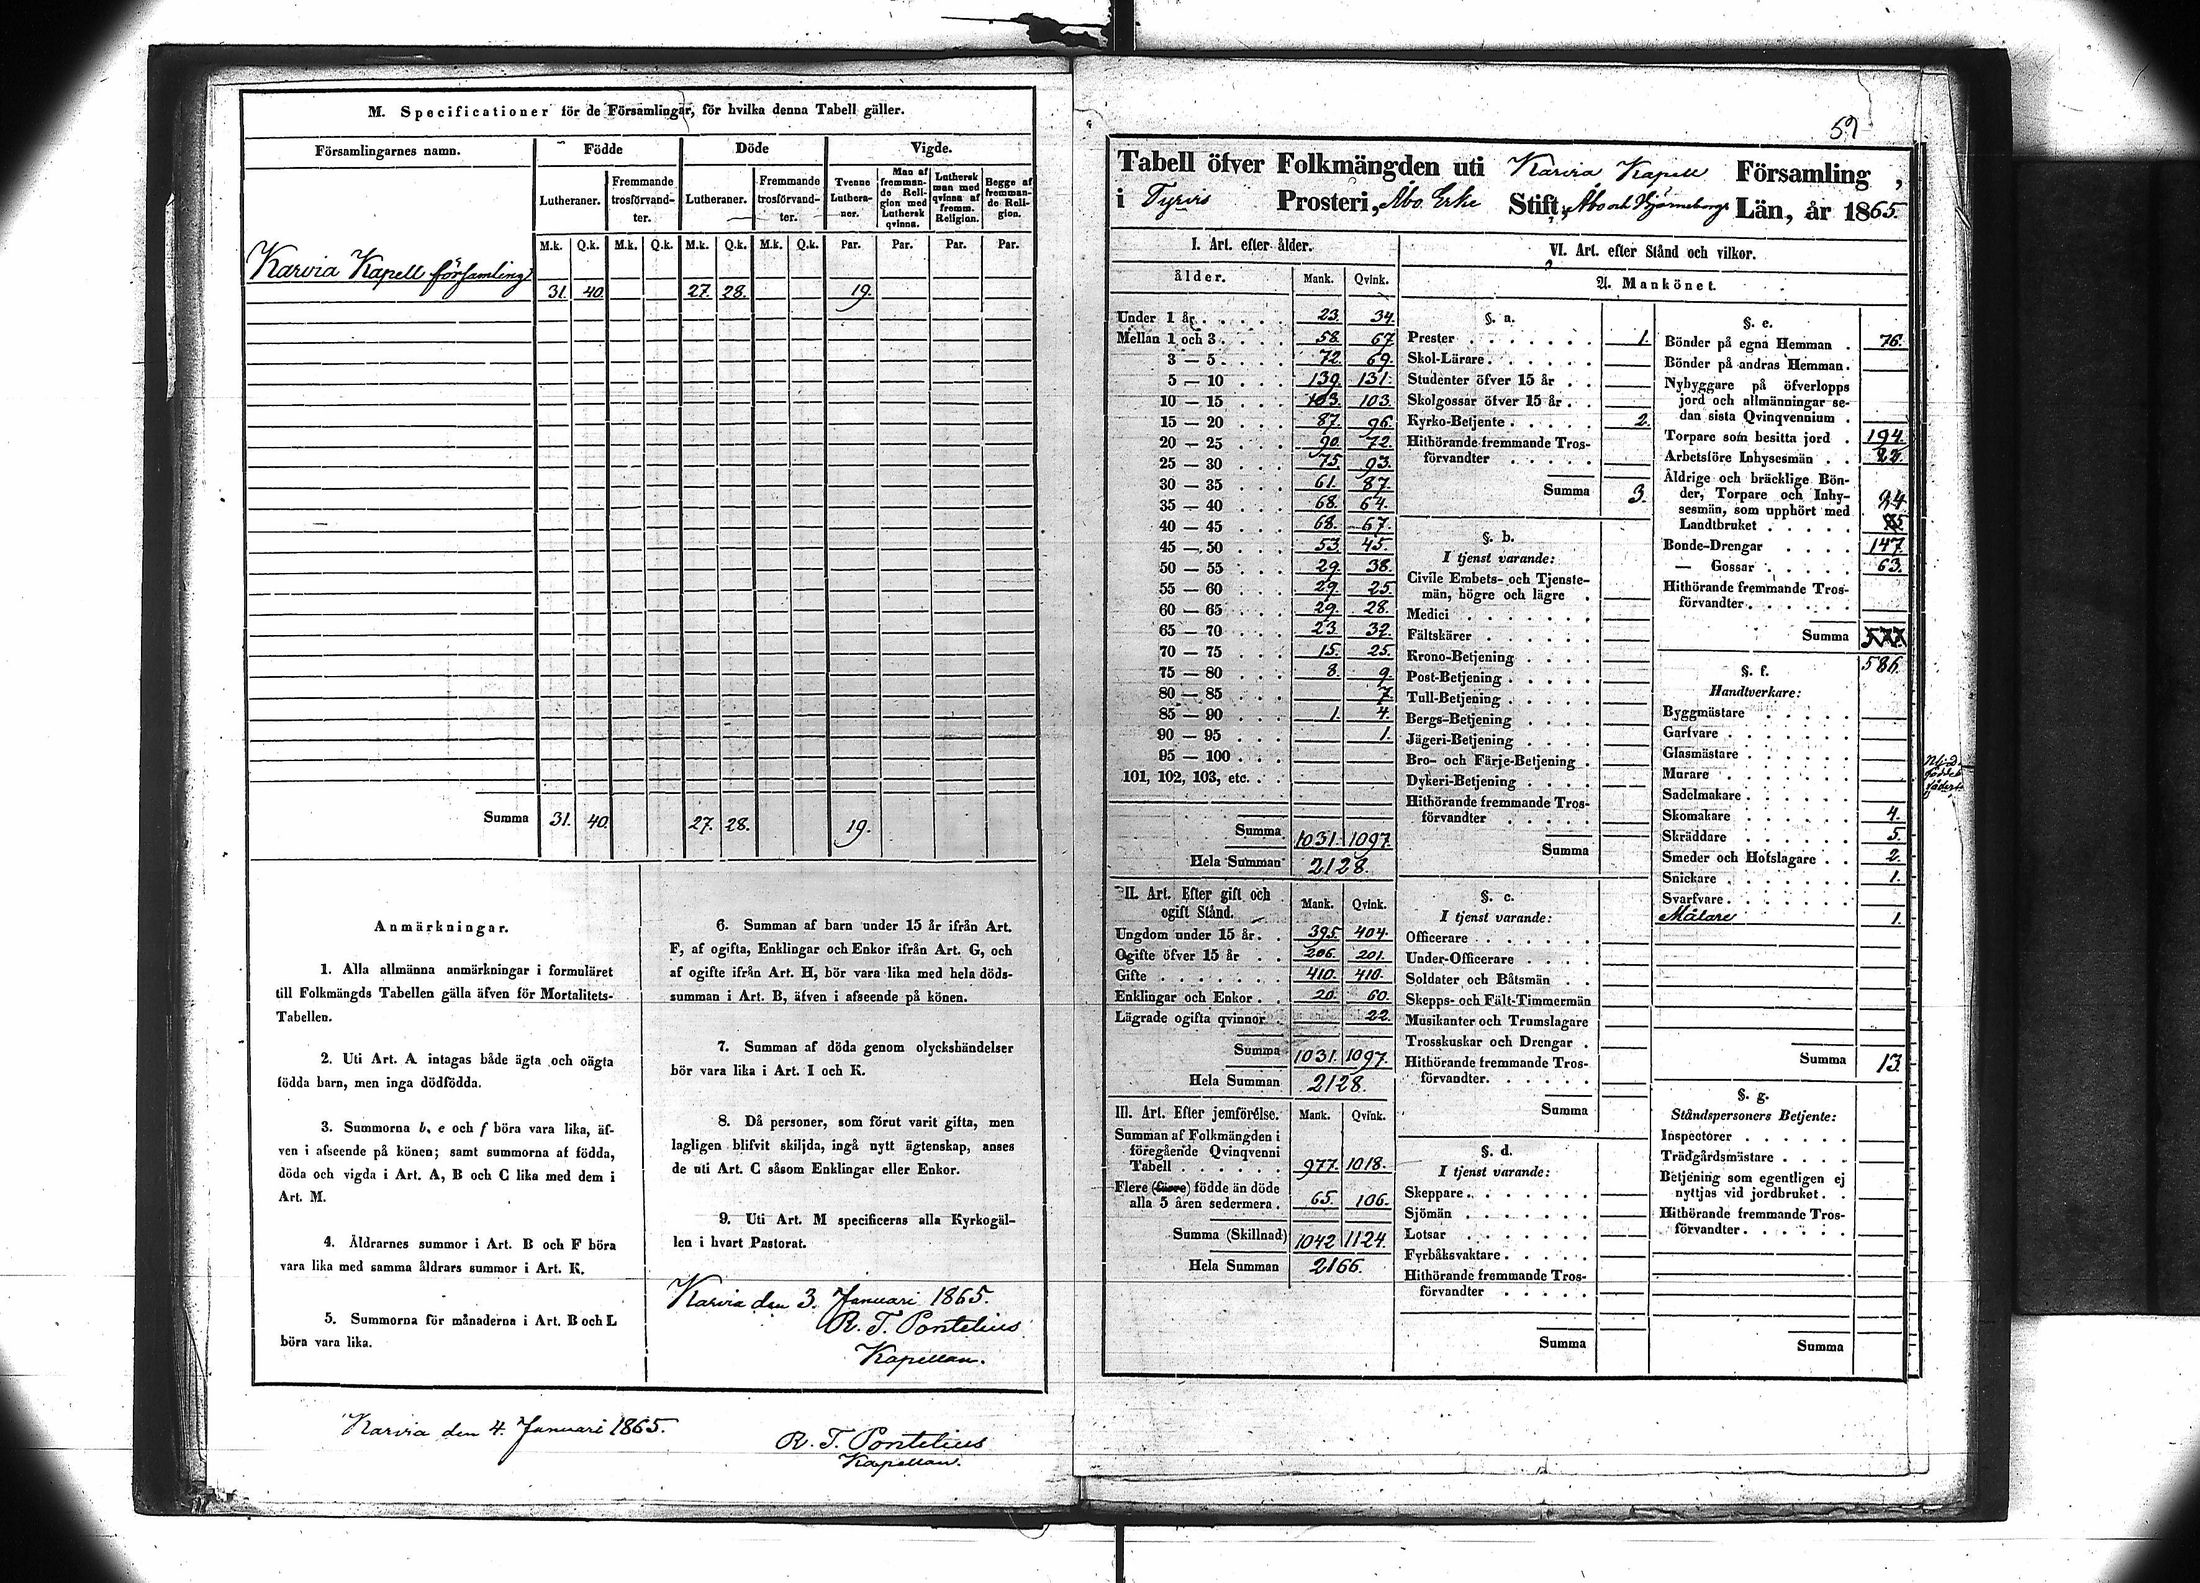 M. Specificationer för de Församlingar, för hvilka denna Tabell gäller.
Församlingarnes namn. Födde Döde Vigde.
Lutheraner. Fremmande trosförvandter. Lutheraner. Fremmande trosförvandter. Tvenne Lutheraner. Man af fremmande Religion med Luthersk qvinna. Luthersk man med qvinna af fremm. Religion. Begge af fremmande Religion.
M.k. Q.k. M.k. Q.k. M.k. Q.k. M.k. Q.k. Par. Par. Par. Par.
Karvia Kapell församling
31. 40. 27. 28. 19.
Summa 31. 40. 27. 28. 19.
Anmärkningar.
1. Alla allmänna anmärkningar i formuläret
till Folkmängds Tabellen gälla äfven för Mortalitets-
Tabellen.
2. Uti Art. A intagas både ägta och oägta
födda barn, men inga dödfödda.
3. Summorna b, e och f böra vara lika, äf-
ven i afseende på könen; samt summorna af födda,
döda och vigda i Art. A, B och C lika med dem i
Art. M.
4. Åldrarnes summor i Art. B och F böra
vara lika med samma åldrars summor i Art. K.
5. Summorna för månaderna i Art. B och L
böra vara lika.
6. Summan af barn under 15 år ifrån Art.
F, af ogifta, Enklingar och Enkor ifrån Art. G, och
af ogifte ifrån Art. H, bör vara lika med hela döds-
summan i Art. B, äfven i afseende på könen.
7. Summan af döda genom olyckshändelser
bör vara lika i Art. I och K.
8. Då personer, som förut varit gifta, men
lagligen blifvit skiljda, ingå nytt ägtenskap, anses
de uti Art. C såsom Enklingar eller Enkor.
9. Uti Art. M specificeras alla Kyrkogäl-
len i hvart Pastorat.
Karvia den 3. Januari 1865.
R. T. Pontelius
Kapellan.
Karvia den 4. Januari 1865.
R. T. Pontelius
Kapellan.
59
Tabell öfver Folkmängden uti Karvia Kapell Församling,
i Tyrvis Prosteri, Åbo Erke Stift, Åbo och Björneborgs Län, år 1865.
I. Art. efter ålder.
ålder. Mank. Qvink.
Under 1 år 23. 34.
Mellan 1 och 3 58. 67
3 — 5 72. 69.
5 — 10 139. 131.
10 — 15 103. 103.
15 — 20 87. 96.
20 — 25 90. 72.
25 — 30 75. 93.
30 — 35 61. 87.
35 — 40 68. 64.
40 — 45 68. 67.
45 — 50 53. 45.
50 — 55 29. 38.
55 — 60 29. 25.
60 — 65 29. 28.
65 — 70 23. 32.
70 — 75 15. 25.
75 — 80 8. 9.
80 — 85 7.
85 — 90 1. 4.
90 — 95 1.
95 — 100
101, 102, 103, etc.
Summa 1031. 1097.
Hela Summan 2128.
II. Art. Efter gift och ogift Stånd. Mank. Qvink.
Ungdom under 15 år 395. 404.
Ogifte öfver 15 år 206. 201.
Gifte 410. 410.
Enklingar och Enkor 20. 60.
Lägrade ogifta qvinnor 22.
Summa 1031. 1097.
Hela Summan 2128.
III. Art. Efter jemförelse. Mank. Qvink.
Summan af Folkmängden i
föregående Qvinqvenni
Tabell 977. 1018.
Flere (färre) födde än döde
alla 5 åren sedermera 65. 106.
Summa (Skillnad) 1042 1124.
Hela Summan 2166.
VI. Art. efter Stånd och vilkor.
A. Mankönet.
§. a.
Prester 1.
Skol-Lärare
Studenter öfver 15 år
Skolgossar öfver 15 år
Kyrko-Betjente 2.
Hithörande fremmande Tros-
förvandter
Summa 3.
§. b.
I tjenst varande:
Civile Embets- och Tjenste-
män, högre och lägre
Medici
Fältskärer
Krono-Betjening
Post-Betjening
Tull-Betjening
Bergs-Betjening
Jägeri-Betjening
Bro- och Färje-Betjening
Dykeri-Betjening
Hithörande fremmande Tros-
förvandter
Summa
§. c.
I tjenst varande:
Officerare
Under-Officerare
Soldater och Båtsmän
Skepps- och Fält-Timmermän
Musikanter och Trumslagare
Trosskuskar och Drengar
Hithörande fremmande Tros-
förvandter.
Summa
§. d.
I tjenst varande:
Skeppare
Sjömän
Lotsar
Fyrbåksvaktare
Hithörande fremmande Tros-
förvandter
Summa
§. e.
Bönder på egna Hemman 76.
Bönder på andras Hemman.
Nybyggare på öfverlopps
jord och allmänningar se-
dan sista Qvinqvennium
Torpare som besitta jord 194.
Arbetsföre Inhysesmän
Åldrige och bräcklige Bön-
der, Torpare och Inhy-
sesmän, som upphört med
Landtbruket 24
Bonde-Drengar 147.
— Gossar 63.
Hithörande fremmande Tros-
förvandter
Summa 577.
586.
§. f.
Handtverkare:
Byggmästare
Garfvare
Glasmästare
Murare
Sadelmakare
Skomakare 4.
Skräddare 5.
Smeder och Hofslagare 2.
Snickare 1.
Svarfvare
Målare 1.
Summa 13.
§. g.
Ståndspersoners Betjente:
Inspectorer
Trädgårdsmästare
Betjening som egentligen ej
nyttjas vid jordbruket
Hithörande fremmande Tros-
förvandter
Summa